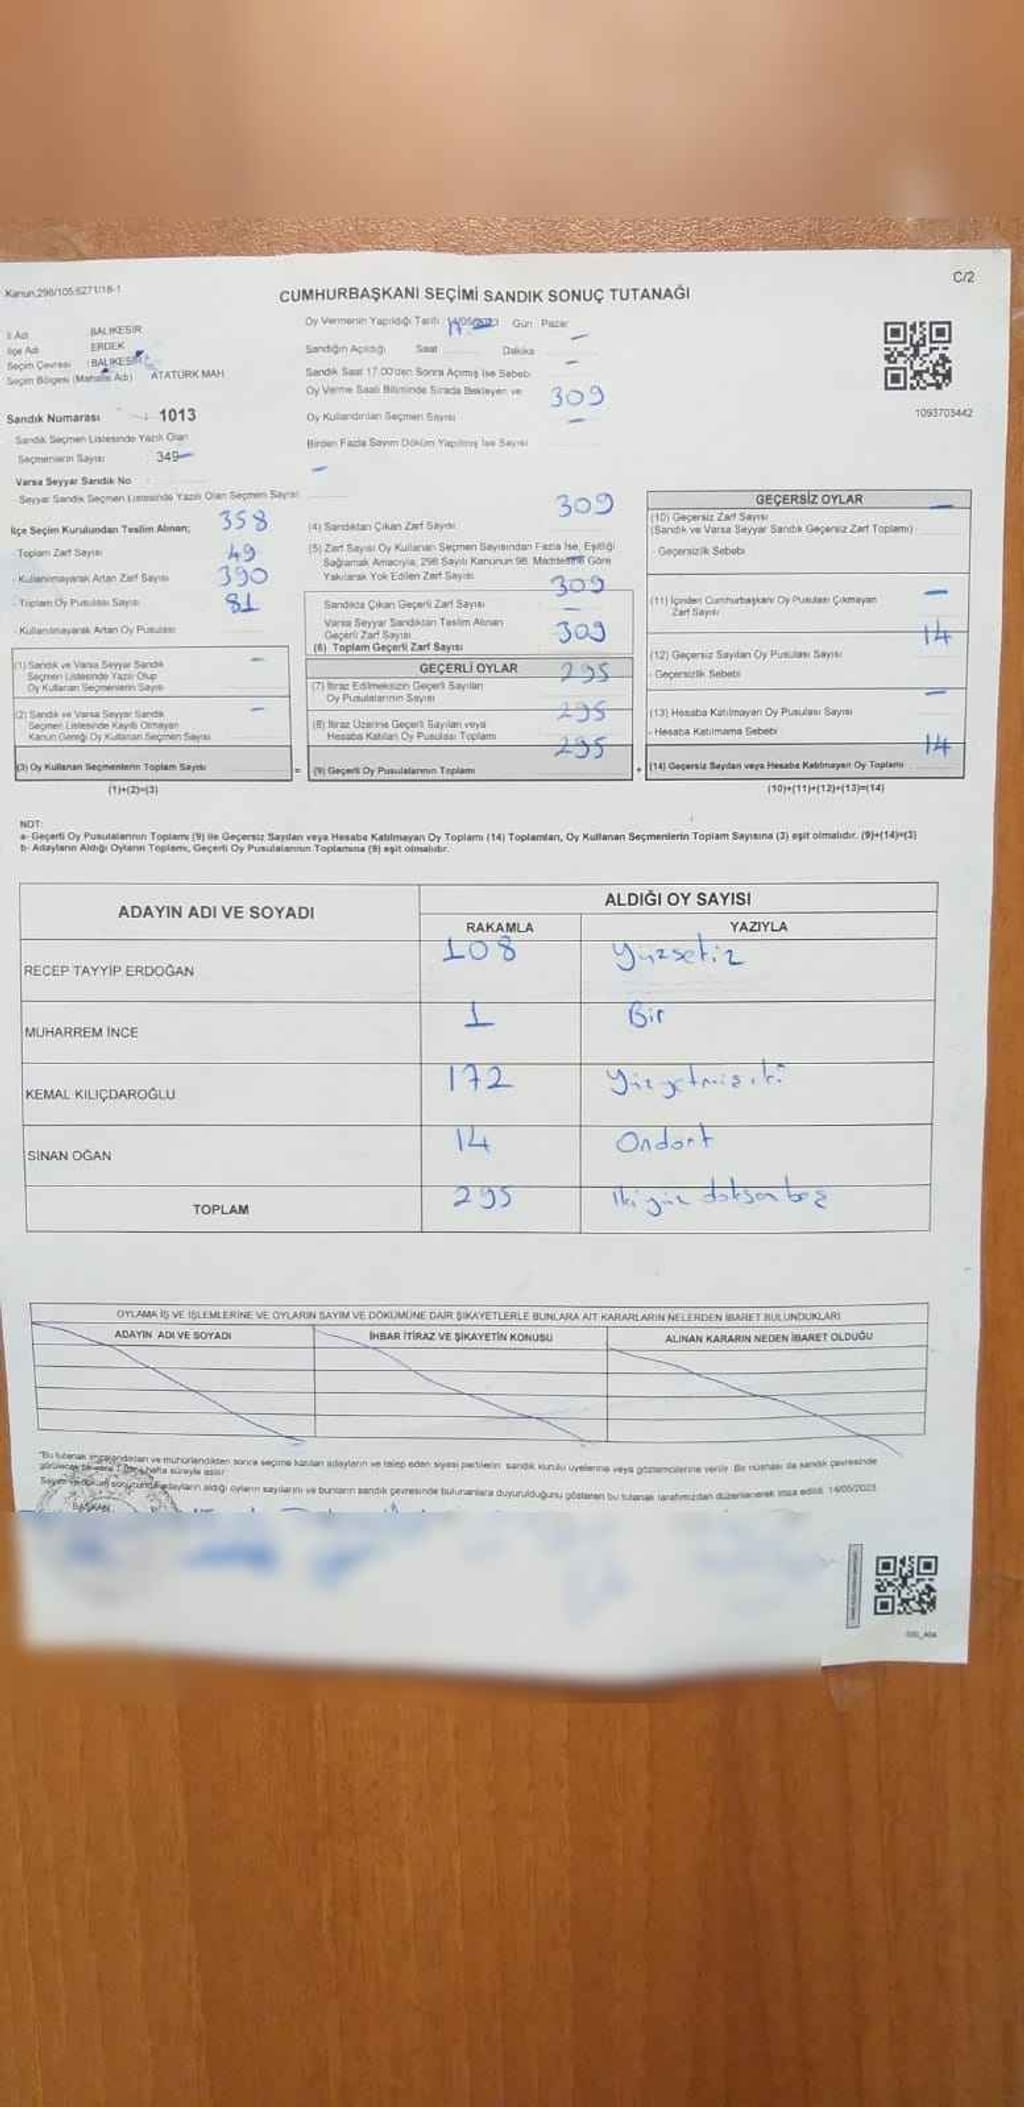 Kanun:298/105:6271/18-1
C/2
CUMHURBAŞKANI SEÇİMİ SANDIK SONUÇ TUTANAĞI
İl Adı BALIKESİR
İlçe Adı ERDEK
Seçim Çevresi BALIKESİR
Seçim Bölgesi (Mahalle Adı) ATATÜRK MAH
Sandık Numarası 1013
Sandık Seçmen Listesinde Yazılı Olan
Seçmenlerin Sayısı 349
Varsa Seyyar Sandık No
Seyyar Sandık Seçmen Listesinde Yazılı Olan Seçmen Sayısı -
Oy Vermenin Yapıldığı Tarih 14/05/2023 Gün Pazar
Sandığın Açıldığı Saat Dakika -
Sandık Saat 17:00'den Sonra Açılmış İse Sebebi -
Oy Verme Saati Bitiminde Sırada Bekleyen ve
Oy Kullandırılan Seçmen Sayısı 309
Birden Fazla Sayım Döküm Yapılmış İse Sayısı -
1093703442
İlçe Seçim Kurulundan Teslim Alınan;
- Toplam Zarf Sayısı 358
- Kullanılmayarak Artan Zarf Sayısı 49
- Toplam Oy Pusulası Sayısı 390
- Kullanılmayarak Artan Oy Pusulası 81
(1) Sandık ve Varsa Seyyar Sandık
Seçmen Listesinde Yazılı Olup
Oy Kullanan Seçmenlerin Sayısı -
(2) Sandık ve Varsa Seyyar Sandık
Seçmen Listesinde Kayıtlı Olmayan
Kanun Gereği Oy Kullanan Seçmen Sayısı -
(3) Oy Kullanan Seçmenlerin Toplam Sayısı
(1)+(2)=(3)
(4) Sandıktan Çıkan Zarf Sayısı 309
(5) Zarf Sayısı Oy Kullanan Seçmen Sayısından Fazla İse, Eşitliği
Sağlamak Amacıyla; 298 Sayılı Kanunun 98. Maddesine Göre
Yakılarak Yok Edilen Zarf Sayısı -
Sandıkta Çıkan Geçerli Zarf Sayısı 309
Varsa Seyyar Sandıktan Teslim Alınan
Geçerli Zarf Sayısı -
(6) Toplam Geçerli Zarf Sayısı 309
GEÇERLİ OYLAR
(7) İtiraz Edilmeksizin Geçerli Sayılan
Oy Pusulalarının Sayısı 295
(8) İtiraz Üzerine Geçerli Sayılan veya
Hesaba Katılan Oy Pusulası Toplamı 295
= (9) Geçerli Oy Pusulalarının Toplamı 295
GEÇERSİZ OYLAR
(10) Geçersiz Zarf Sayısı
(Sandık ve Varsa Seyyar Sandık Geçersiz Zarf Toplamı) -
- Geçersizlik Sebebi
(11) İçinden Cumhurbaşkanı Oy Pusulası Çıkmayan
Zarf Sayısı -
(12) Geçersiz Sayılan Oy Pusulası Sayısı 14
- Geçersizlik Sebebi
(13) Hesaba Katılmayan Oy Pusulası Sayısı -
- Hesaba Katılmama Sebebi
+ (14) Geçersiz Sayılan veya Hesaba Katılmayan Oy Toplamı 14
(10)+(11)+(12)+(13)=(14)
NOT:
a- Geçerli Oy Pusulalarının Toplamı (9) ile Geçersiz Sayılan veya Hesaba Katılmayan Oy Toplamı (14) Toplamları, Oy Kullanan Seçmenlerin Toplam Sayısına (3) eşit olmalıdır. (9)+(14)=(3)
b- Adayların Aldığı Oyların Toplamı, Geçerli Oy Pusulalarının Toplamına (9) eşit olmalıdır.
ADAYIN ADI VE SOYADI ALDIĞI OY SAYISI
RAKAMLA YAZIYLA
RECEP TAYYİP ERDOĞAN 108 Yüzsekiz
MUHARREM İNCE 1 Bir
KEMAL KILIÇDAROĞLU 172 Yüzyetmişiki
SİNAN OĞAN 14 Ondört
TOPLAM 295 İkiyüz doksan beş
OYLAMA İŞ VE İŞLEMLERİNE VE OYLARIN SAYIM VE DÖKÜMÜNE DAİR ŞİKAYETLERLE BUNLARA AİT KARARLARIN NELERDEN İBARET BULUNDUKLARI
ADAYIN ADI VE SOYADI İHBAR İTİRAZ VE ŞİKAYETİN KONUSU ALINAN KARARIN NEDEN İBARET OLDUĞU
"Bu tutanak imzalandıktan ve mühürlendikten sonra seçime katılan adayların ve talep eden siyasi partilerin sandık kurulu üyelerine veya gözlemcilerine verilir. Bir nüshası da sandık çevresinde
görülecek bir yere 1 (bir) hafta süreyle asılır.
Sayım ve döküm sonucunda adayların aldığı oyların sayılarını ve bunların sandık çevresinde bulunanlara duyurulduğunu gösteren bu tutanak tarafımızdan düzenlenerek imza edildi. 14/05/2023
BAŞKAN